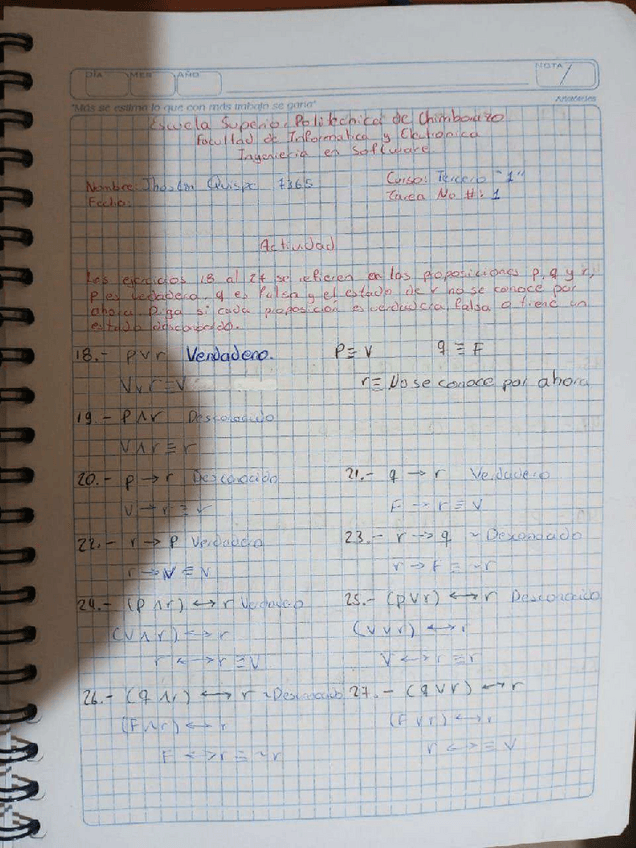 DÍA MES AÑO NOTA
"Más se estima lo que con más trabajo se gana"
Escuela Superior Politécnica de Chimborazo
Facultad de Informatica y Electronica
Ingenieria en Software
Nombre: Jhoston Quispe 7365 Curso: Tercero "1"
Fecha: Tarea No #: 1
Actividad
Los ejercicios 18 al 27 se refieren en las proposiciones p, q y r;
p es verdadera, q es falsa y el estado de r no se conoce por
ahora. Diga si cada proposicion es verdadera, falsa o tiene un
estado desconocido.
18.- p ∨ r Verdadero. P ≡ V q ≡ F
V ∨ r ≡ V r ≡ No se conoce por ahora
19.- p ∧ r Desconocido
V ∧ r ≡ r
20.- p → r Desconocido 21.- q → r Verdadero
V → r ≡ r F → r ≡ V
22.- r → p Verdadero 23.- r → q ~Desconocido
r → V ≡ V r → F ≡ ~r
24.- (p ∧ r) ↔ r Verdadero 25.- (p ∨ r) ↔ r Desconocido
(V ∧ r) ↔ r (V ∨ r) ↔ r
r ↔ r ≡ V V ↔ r ≡ r
26.- (q ∧ r) ↔ r ~Desconocido 27.- (q ∨ r) ↔ r
(F ∧ r) ↔ r (F ∨ r) ↔ r
F ↔ r ≡ ~r r ↔ ≡ V